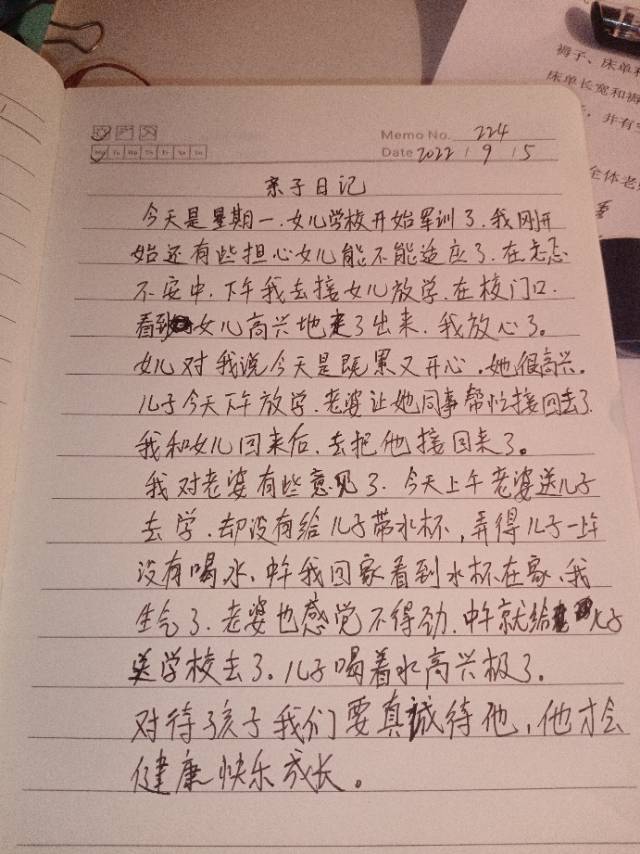 Memo No. 224
Mo Tu We Th Fr Sa Su
Date 2022 / 9 / 5
亲子日记
今天是星期一.女儿学校开始军训了.我刚开
始还有些担心女儿能不能适应了.在忐忑
不安中.下午我去接女儿放学.在校门口.
看到女儿高兴地走了出来.我放心了。
女儿对我说今天是既累又开心.她很高兴.
儿子今天下午放学.老婆让她同事帮忙接回去了.
我和女儿回来后.去把他接回来了。
我对老婆有些意见了.今天上午老婆送儿子
去学.却没有给儿子带水杯,弄得儿子一上午
没有喝水、中午我回家看到水杯在家、我
生气了.老婆也感觉不得劲.中午就给儿子
送学校去了。儿子喝着水高兴极了。
对待孩子我们要真诚待他,他才会
健康快乐成长。
褥子、床单和
床单长宽和褥
并有
全体老